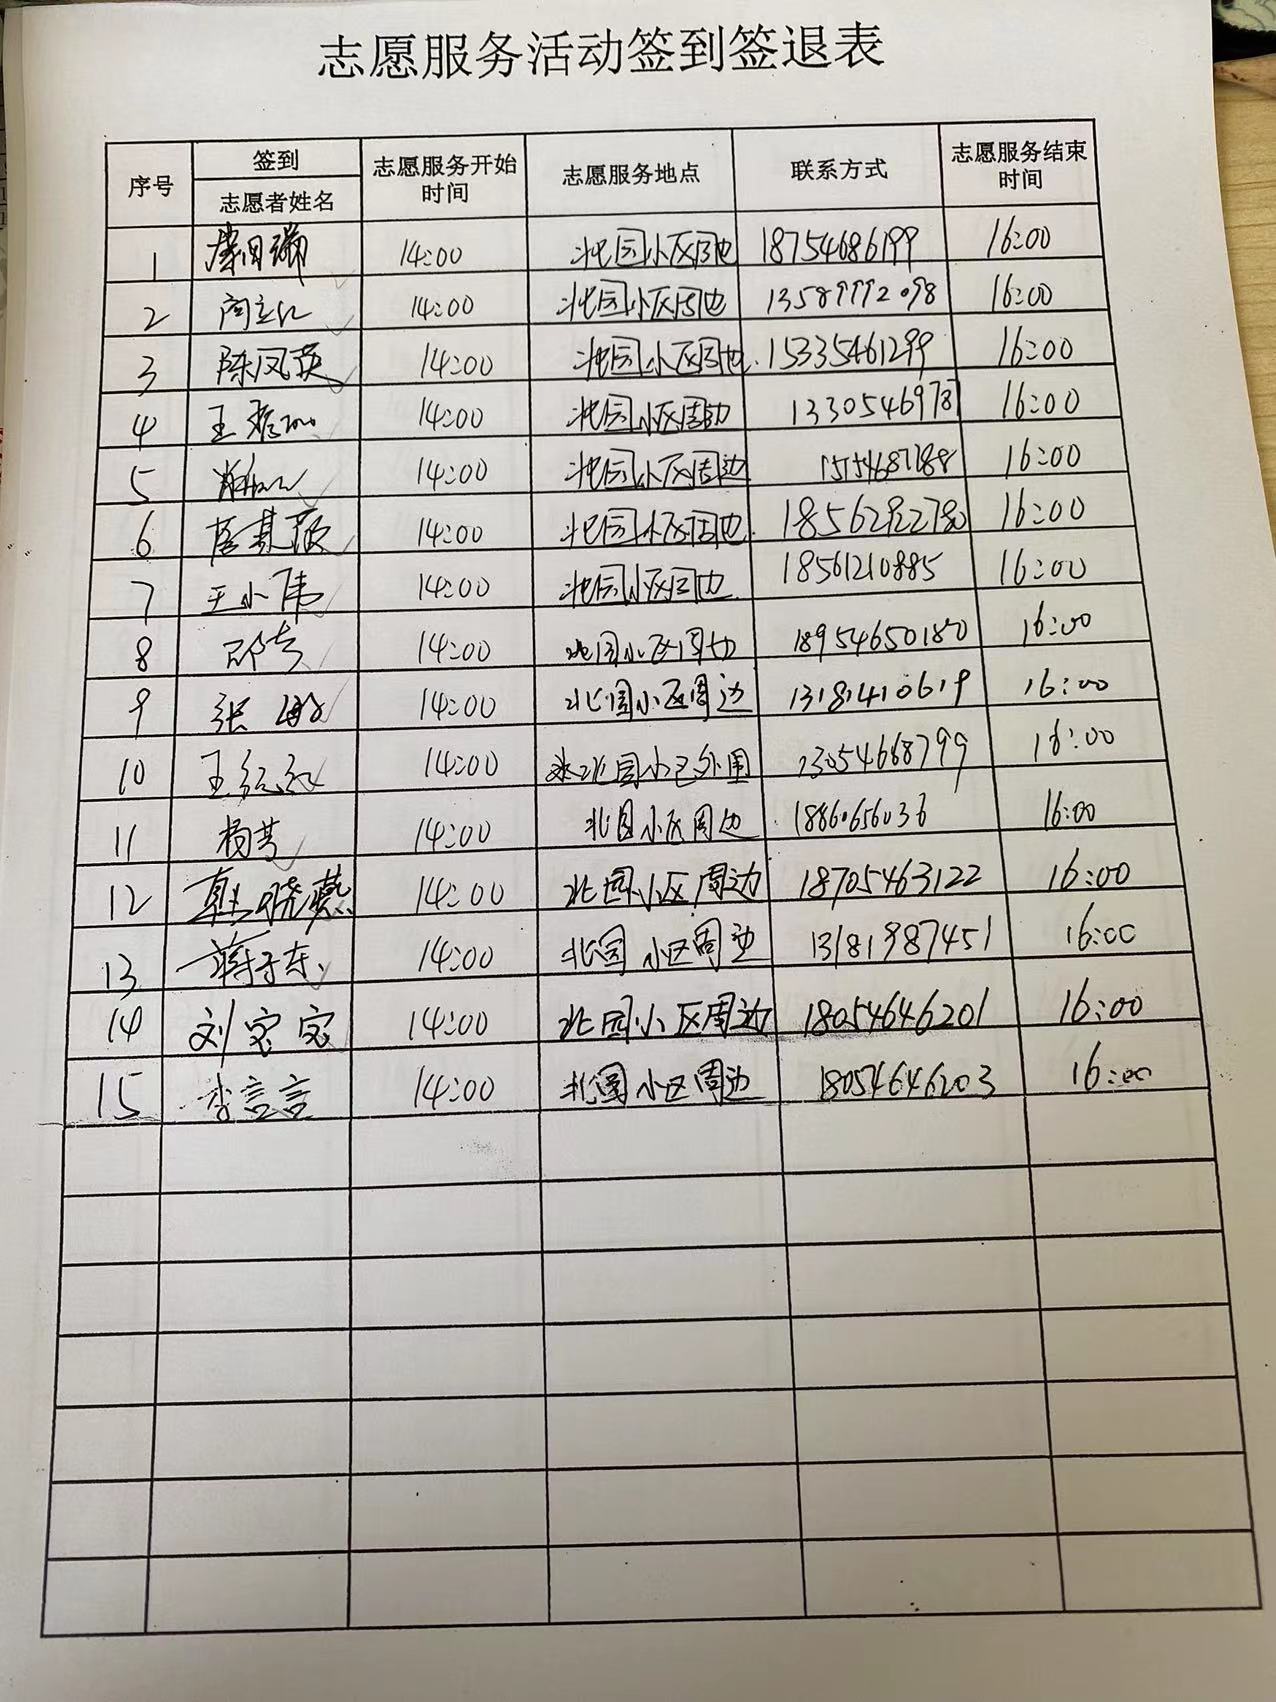 志愿服务活动签到签退表
序号 签到 志愿者姓名 志愿服务开始时间 志愿服务地点 联系方式 志愿服务结束时间
1 14:00 北园小区周边 18754686199 16:00
2 14:00 北园小区周边 13589992098 16:00
3 陈凤英 14:00 北园小区周边 15335461299 16:00
4 14:00 北园小区周边 16:00
5 14:00 北园小区周边 16:00
6 14:00 北园小区周边 16:00
7 王小伟 14:00 北园小区周边 18561210885 16:00
8 14:00 北园小区周边 18954650180 16:00
9 张敏 14:00 北园小区周边 13181410619 16:00
10 王红红 14:00 北园小区外围 13054668799 16:00
11 杨芳 14:00 北园小区周边 18860656036 16:00
12 韩晓燕 14:00 北园小区周边 18705463122 16:00
13 蒋于东 14:00 北园小区周边 13181987451 16:00
14 刘密密 14:00 北园小区周边 18054646201 16:00
15 李言言 14:00 北园小区周边 18054646203 16:00